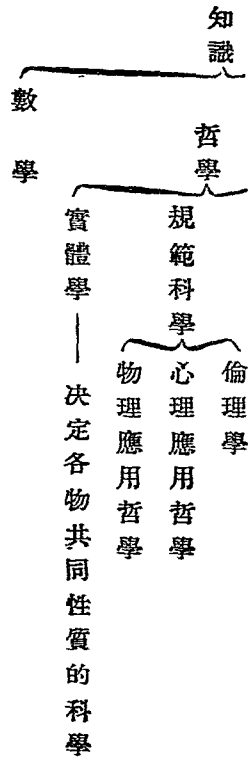 知識
哲學
倫理學
規範科學
心理應用哲學
物理應用哲學
實體學——決定各物共同性質的科學
數學